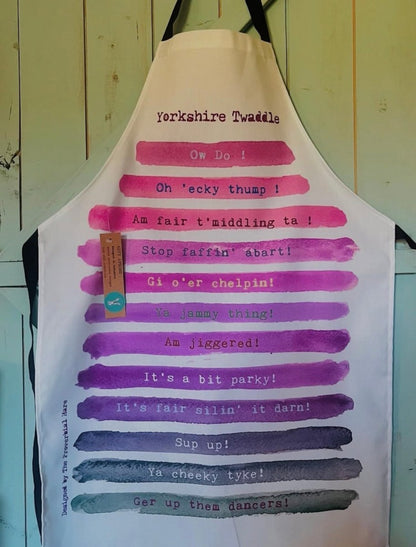 Yorkshire Twaddle
Ow Do !
Oh 'ecky thump !
Am fair t'middling ta !
Stop faffin' abart!
Gi o'er chelpin!
Ya jammy thing!
Am jiggered!
It's a bit parky!
It's fair silin' it darn!
Sup up!
Ya cheeky tyke!
Ger up them dancers!
Designed by The Proverbial Hare